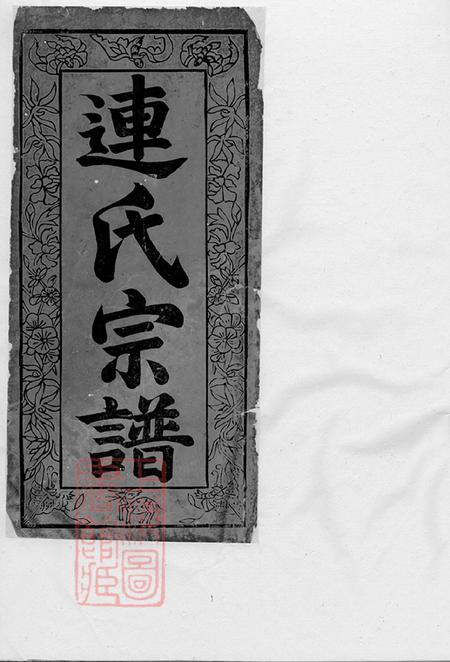 連氏宗譜